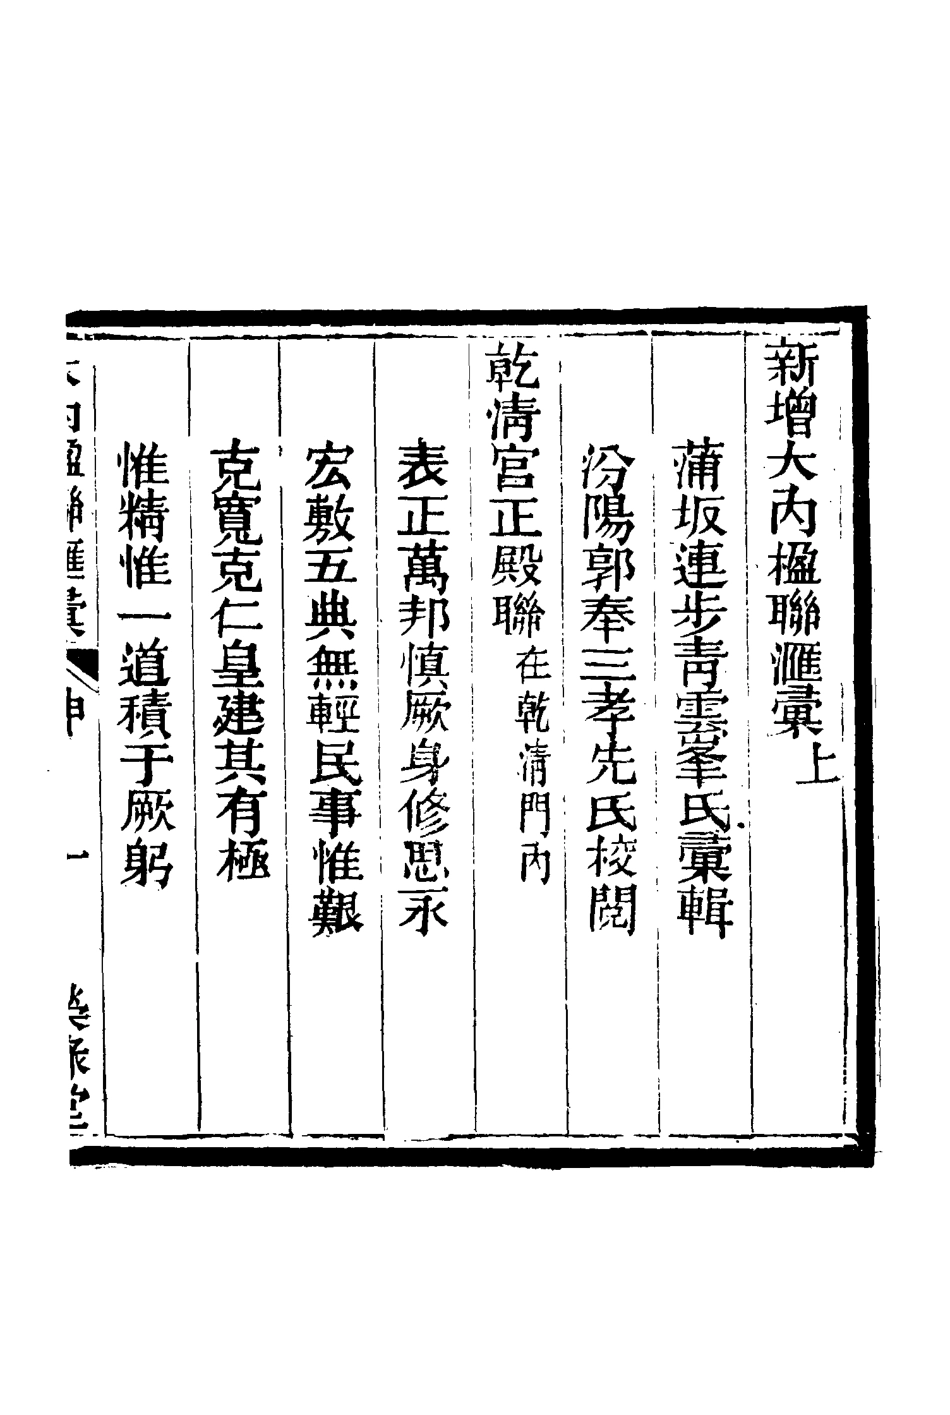 新增大內楹聯滙彙上
蒲坂連步青雲峯氏彙輯
汾陽郭奉三孝先氏校閱
乾清宮正殿聯在乾清門內
表正萬邦慎厥身修思永
宏敷五典無輕民事惟艱
克寬克仁皇建其有極
惟精惟一道積于厥躬
大內楹聯滙彙
一